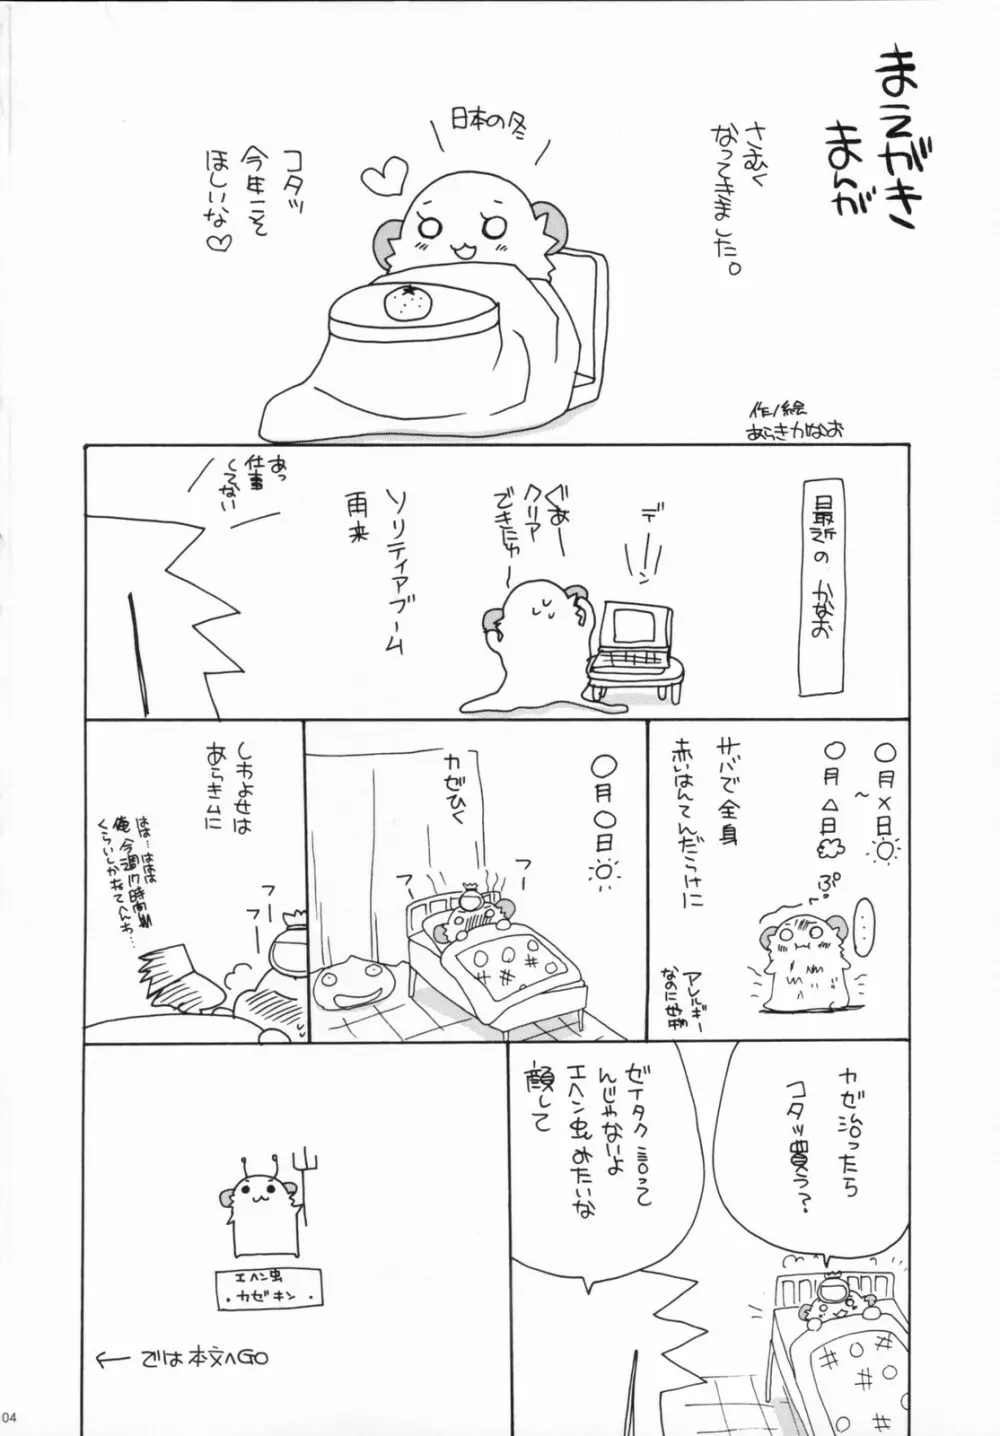 まえがき
まんが
さむく
なってきました。
日本の冬
コタツ
今年こそ
ほしいな♡
作/絵
あらきかなお
最近のかなお
デーン
ぐあー
クリア
できにゅ〜
ソリティアブーム
再来
あっ
仕事
してない
〇月×日
〜
〇月△日
ぷ°
……
サバで全身
赤いはんてんだらけに
アレルギー
なのに好物
〇月〇日
カゼひく
フー
フー
しわよせは
あらきムに
はは…ははは
俺今週17時間
くらいしかねてへんわ…
フー
フー
カゼ治ったら
コタツ買う?
ゼイタク言って
んじゃないよ
エヘン虫みたいな
顔して
エヘン虫
・カゼキン・
← では本文へGO
04